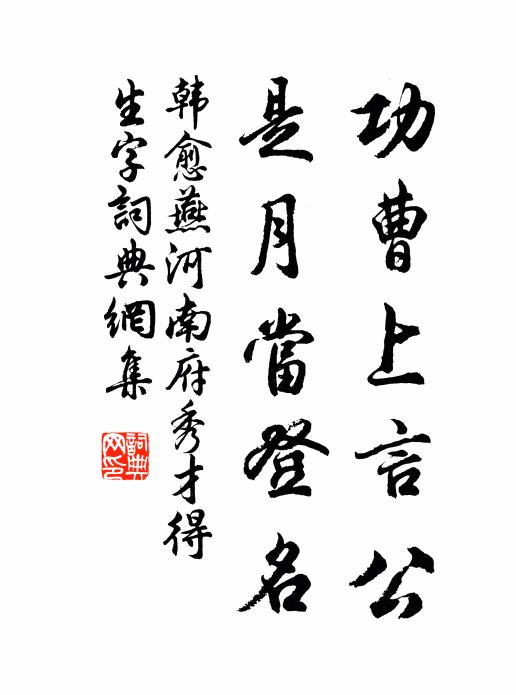 功曹上言公
是月當登名
韓愈燕河南府秀才得
生字詞典網集
詞典网印